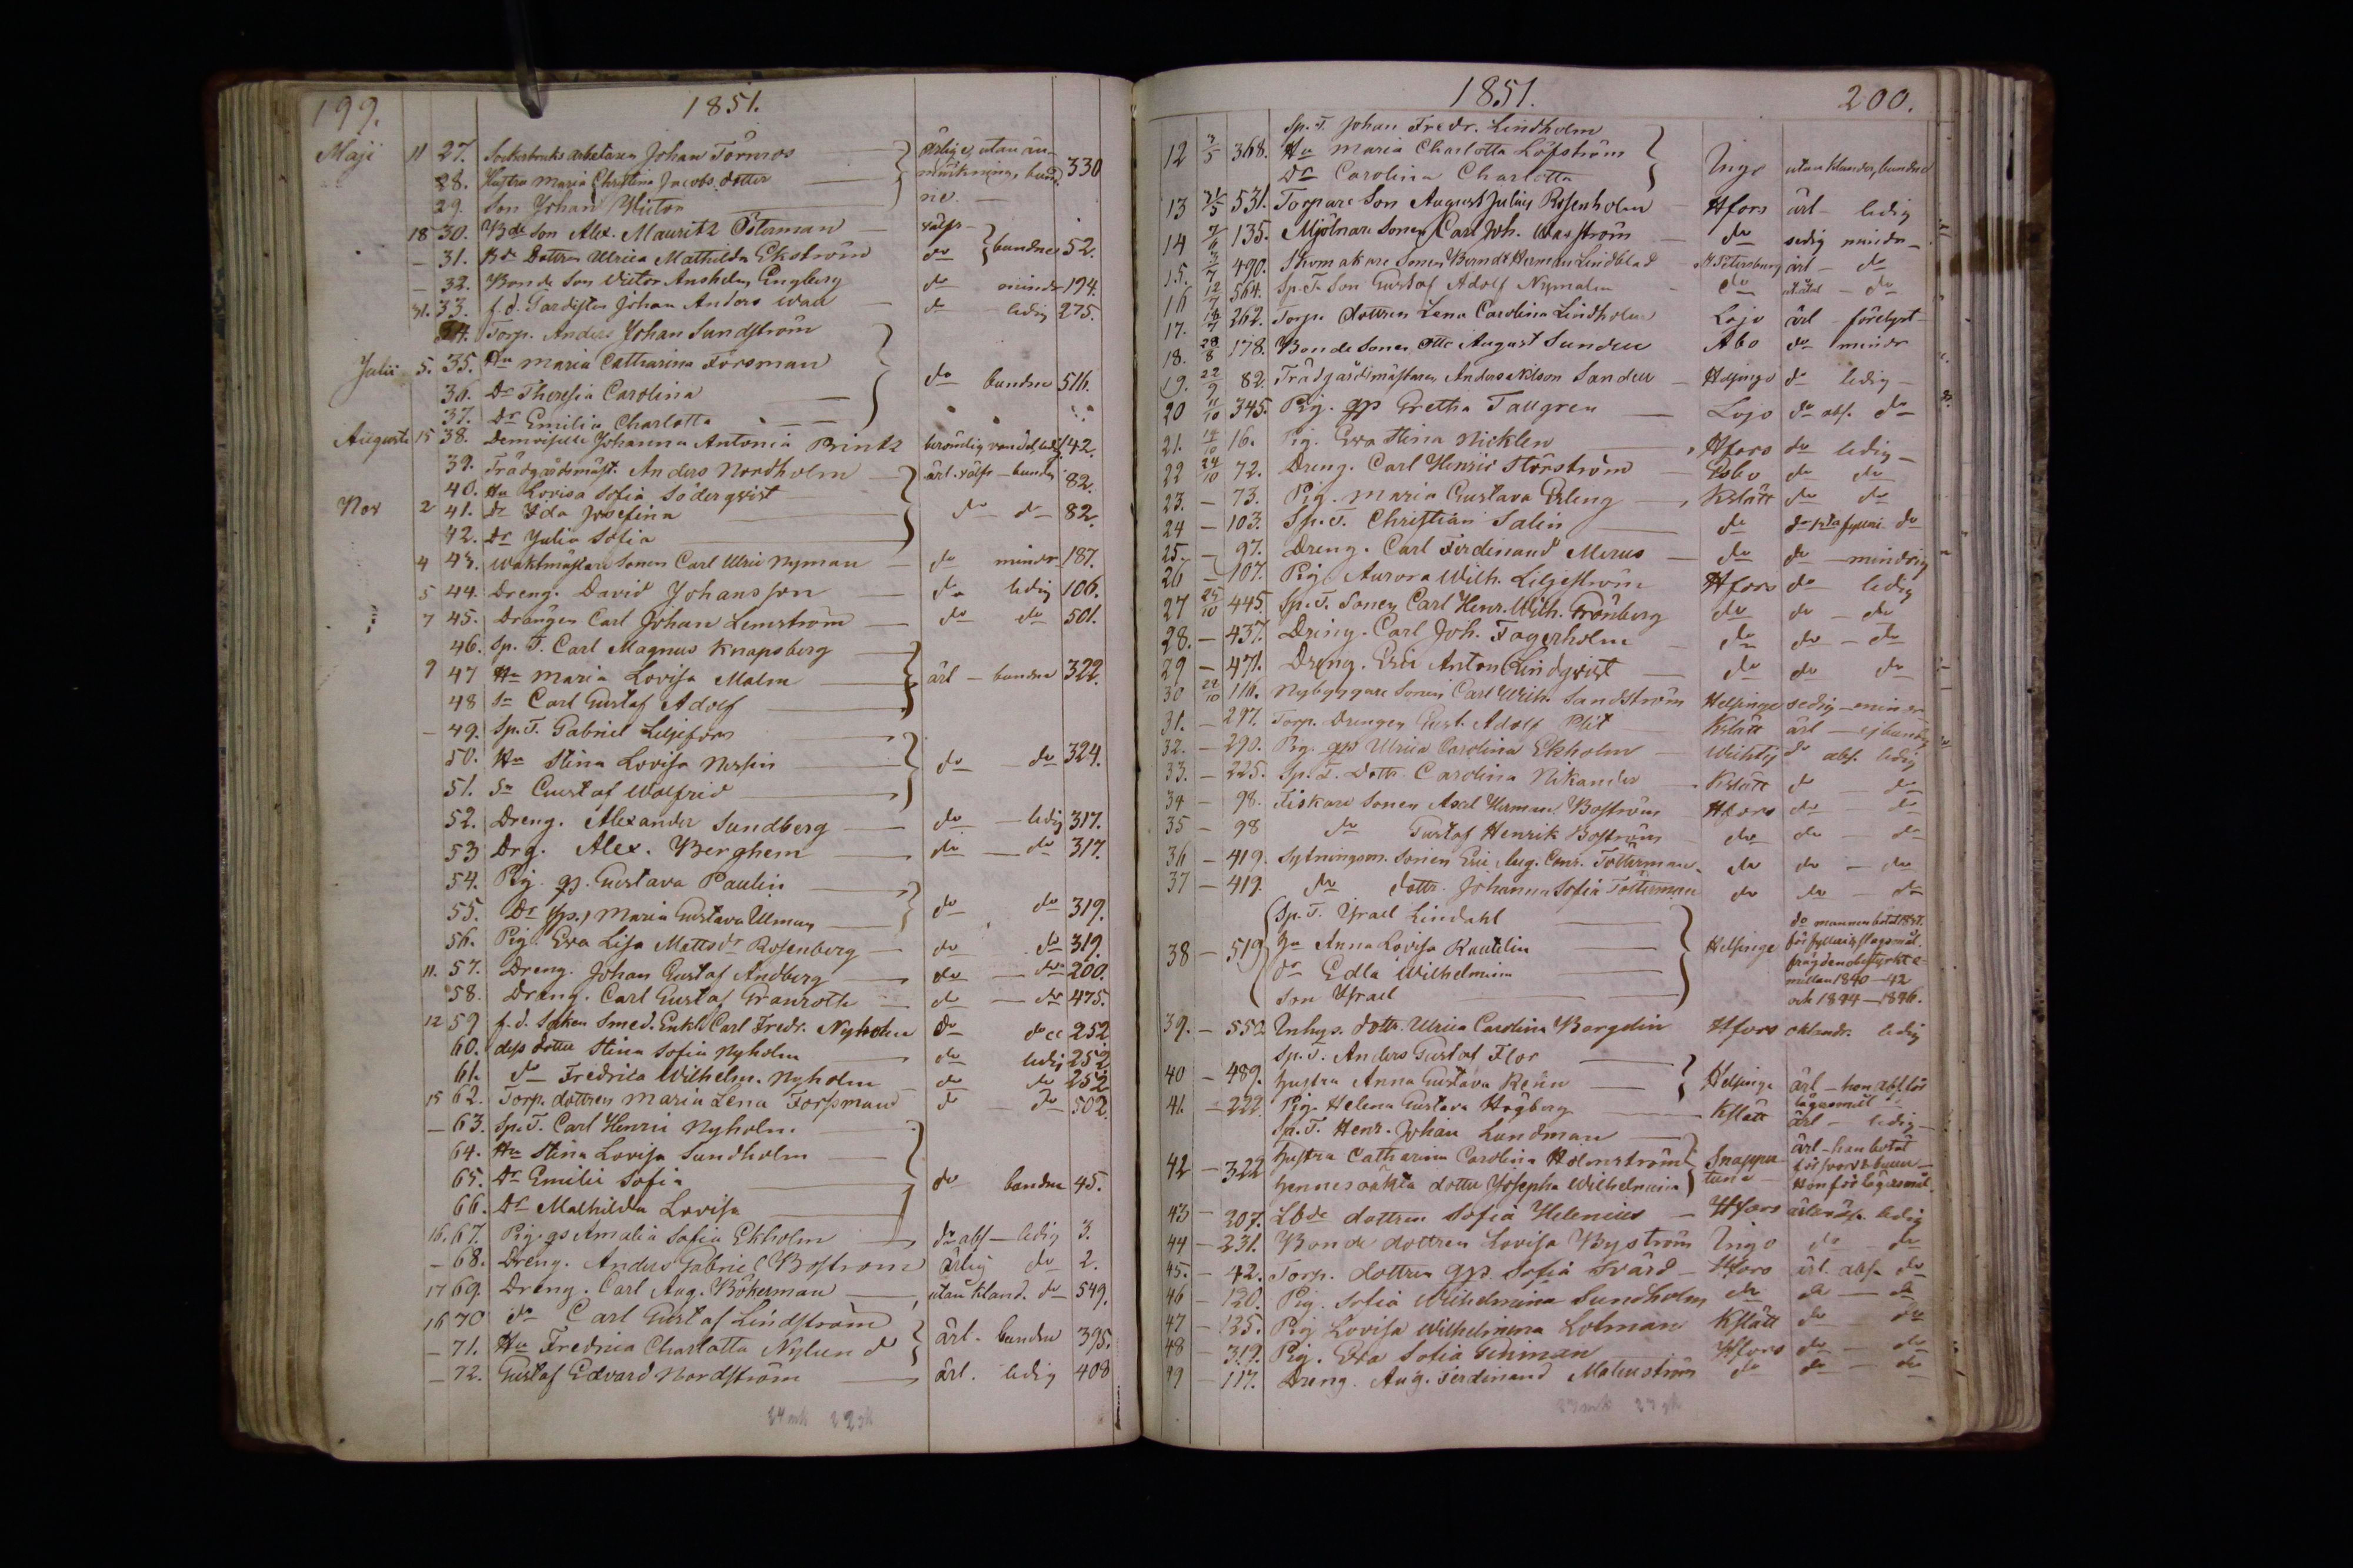 199. 1851.
Maji 11 27. Sockerbruks arbetaren Johan Törnros ärlige, utan an-
28. Hustru Maria Christina Jacobs dotter märkning, bund. 330
29. Son Johan Victor ne.
18 30. Bde Son Alex. Mauritz Österman välfr-
— 31. Bde Dottren Ulrica Mathilda Ekström do bundne 52.
— 32. Bonde Son Victor Anshelm Engberg do mindr 194.
31. 33. f. d. Gardisten Johan Anders Wall do ledig 275.
34. Torp. Anders Johan Sundström
Julii 5. 35. Hu Maria Catharina Forsman
36. Dr Theresia Carolina do bundne 516.
37. Dr Emilia Charlotta
Augusti 15 38. Demoiselle Johanna Antonia Printz berömlig vandel, ledig 142.
39. Trädgårdsmäst. Anders Nordholm ärl. välfr — bundn 82.
40. Hu Lovisa Sofia Söderqvist
Nov 2 41. Dr Ida Josefina do do 82.
42. Dr Julia Sofia
4 43. Waktmästare Sonen Carl Ulric Nyman do mindr 187.
5 44. Dreng. David Johansson do ledig 106.
7 45. Drängen Carl Johan Lemström do do 501.
46. Sp. T. Carl Magnus Knapsberg
9 47 Hu Maria Lovisa Malm ärl — bundne 322.
48 Sn Carl Gustaf Adolf
— 49. Sp. T. Gabriel Liljefors
50. Hu Stina Lovisa Nessin do do 324.
51. Sn Gustaf Wolfrid
52. Dreng. Alexander Sundberg do — ledig 317.
53 Drg. Alex. Berghem do — do 317.
54. Pig. gp. Gustava Paulin
55. Dr (sp.) Maria Gustava Ulman do do 319.
56. Pig. Eva Lisa Mattsdr Rosenberg do do 319.
11. 57. Dreng. Johan Gustaf Andberg do — do 200.
58. Dreng. Carl Gustaf Granroth do — do 475.
12 59 f. d. Socken Smed. Enkl. Carl Fredr. Nyholm do do 252
60. dess dotter Stina Sofia Nyholm do ledig 252
61. do Fredrica Wilhelm. Nyholm do do 252
15 62. Torp. dottren Maria Lena Forssman do — do 502.
— 63. Sp. T. Carl Henric Nyholm
64. Hu Stina Lovisa Sundholm
65. Dr Emilie Sofia do bundne 45.
66. Dr Mathilda Lovisa
16. 67. Pig. gs Amalia Sofia Ekholm do abs — ledig 3.
— 68. Dreng. Anders Gabriel Boström ärlig do 2.
17 69. Dreng. Carl Aug. Bökerman utan kland. do 549.
16 70 do Carl Gustaf Lindström
— 71. Hu Fredrica Charlotta Nylund ärl. bundne 395.
— 72. Gustaf Edvard Nordström ärl. ledig 408
1851. 200.
Sp. T. Johan Fredr. Lindholm
12 3/5 368. Hu Maria Charlotta Löfström Ingo utan klander, bundne
Dr Carolina Charlotta
13 31/5 531. Torpare Son August Julius Rosenholm Hfors ärl — ledig
14 7/6 135. Mjölnare Sonen Carl Joh. Wasström do sedig mindr
15. 3/7 490. Skomakare Sonen Berndt Herman Lindblad St. Petersburg ärl — do
16 12/7 564. Sp. T. Son Gustaf Adolf Nymalm do — do
17. 14/7 262. Torp. dottren Lena Carolina Lindholm Lojo ärl — förelyst
18. 28/8 178. Bonde Sonen Otto August Sundell Abo do mindr
19. 22/9 82. Trädgårdsmästaren Anders Nilson Sandell Helsinge do ledig —
20 11/10 345. Pig. gp Gretha Tallgren — Lojo do abs. do
21. 14/10 16. Pig. Eva Stina Nicklen Hfors do ledig —
22 24/10 72. Dreng. Carl Henric Störström Esbo do do
23 — 73. Pig. Maria Gustava Erleng Kslätt do do
24 — 103. Sp. T. Christian Salin do do 1sta fylleri do
25. — 97. Dreng. Carl Ferdinand Merus do do — mindrig
26 — 107. Pig. Aurora Wilh. Liljeström Hfors do ledig
27 25/10 445. Sp. T. Sonen Carl Henr. Wilh. Grönberg do do — do
28. — 437. Dreng. Carl Joh. Fagerholm do do — do
29 — 471. Dreng. Eric Anton Lindqvist do do do
30 28/10 116. Nybyggare Sonen Carl Wilh. Sandström Helsinge sedig — minr
31. — 297. Torp. Drengen Gust. Adolf Blit Kslätt ärl — ej bunden
32. — 290. Pig. gp Ulrica Carolina Ekholm Wichtis do abs. ledig
33. — 225. Sp. T. Dottr. Carolina Nikander Kslätt do — do
34 — 98. Fiskare Sonen Axel Herman Boström Hfors do — do
35 — 98 do Gustaf Henrik Boström do do — do
36 — 419. Sytningsm. Sonen Eric Aug. Conr. Totterman do do — do
37 — 419. do dottr. Johanna Sofia Totterman do do — do
Sp. T. Israel Lindahl do mannen bötat 1837.
38 — 519 Hu Anna Lovisa Rautelin Helsinge för fylleri, slagsmål.
dr Edla Wilhelmina frägden obestyrkt e-
Son Israel mellan 1840—42
och 1844—1846.
39. — 552 Inhys. dottr. Ulrica Carolina Bergdin Hfors oklandr. ledig
Sp. T. Anders Gustaf Flor
40 — 489. Hustru Anna Gustava Renn Helsinge ärl — hon abs. för
lägersmål
41. — 222. Pig. Helena Gustava Högberg Kslätt ärl — ledig —
Sp. T. Henr. Johan Lundman ärl — han bötat
42 — 322 Hustru Catharina Carolina Holmström Snappertuna för svordom —
hennes oäkta dotter Josepha Wilhelmina Hon för lägersmål.
43 — 307. Lbde dottren Sofia Helenius — Hfors ärl. välfr. ledig
44 — 231. Bonde dottren Lovisa Byström Ingo do — do
45. — 42. Torp. dottren gp. Sofia Svärd — Hfors ärl. abs. do
46 — 120. Pig. Sofia Wilhelmina Sundholm do do — do
47 — 135. Pig Lovisa Wilhelmina Lolman Kslätt do — do
48 — 319. Pig. Eva Sofia Ginman Hfors do — do
49 — 117. Dreng. Aug. Ferdinand Malmström do do — do